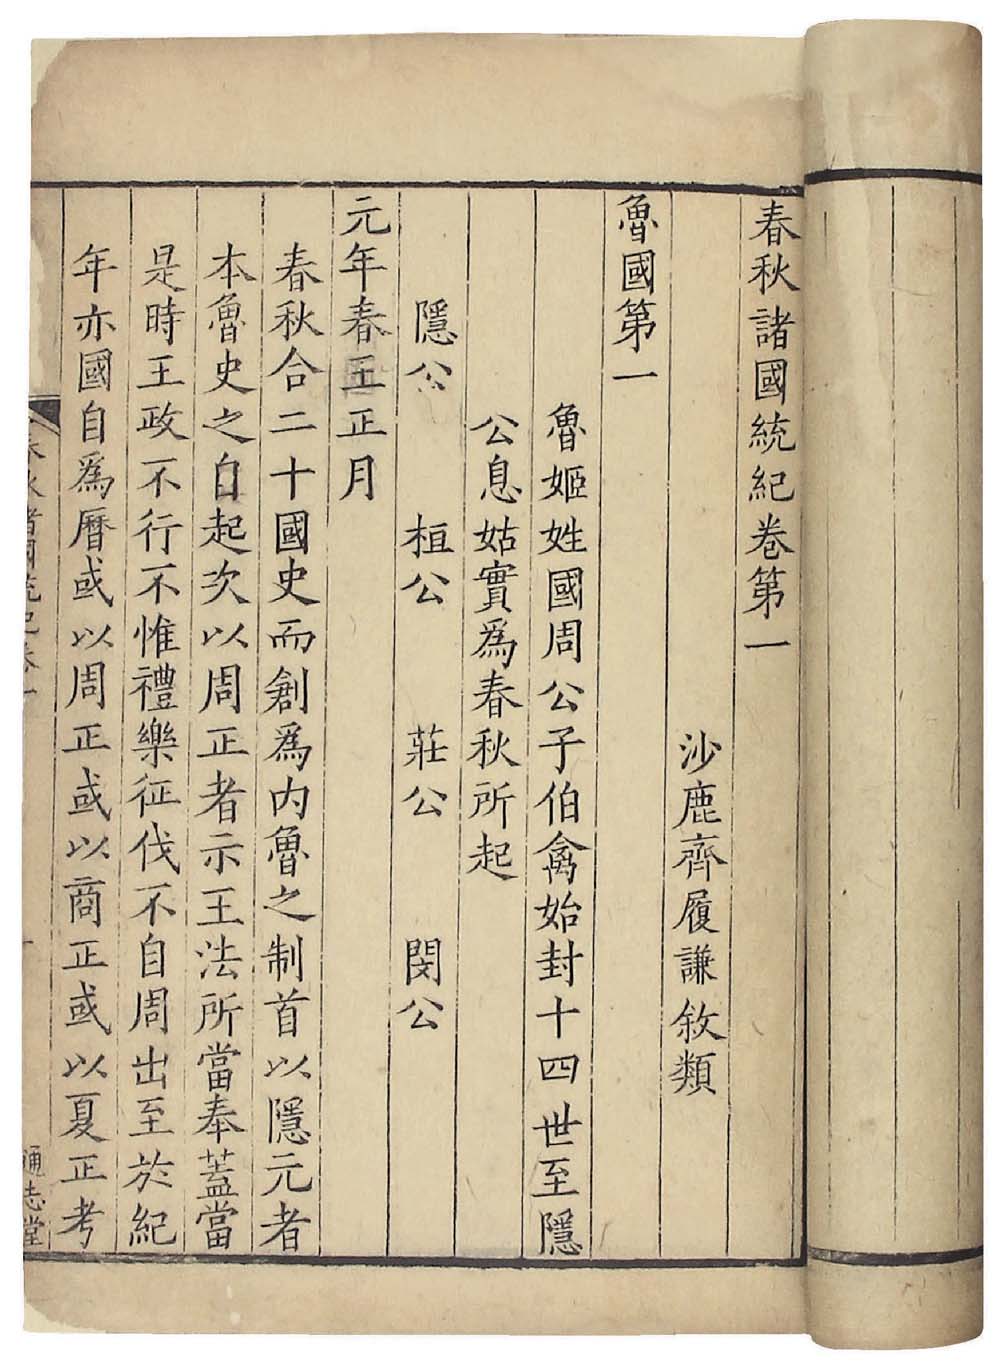 春秋諸國統紀卷第一
沙鹿齊履謙敘類
魯國第一
魯姬姓國周公子伯禽始封十四世至隱
公息姑實爲春秋所起
隱公 桓公 莊公 閔公
元年春王正月
春秋合二十國史而創爲内魯之制首以隱元者
本魯史之自起次以周正者示王法所當奉蓋當
是時王政不行不惟禮樂征伐不自周出至於紀
年亦國自爲曆或以周正或以商正或以夏正考
春秋諸國統紀卷一
一
通志堂